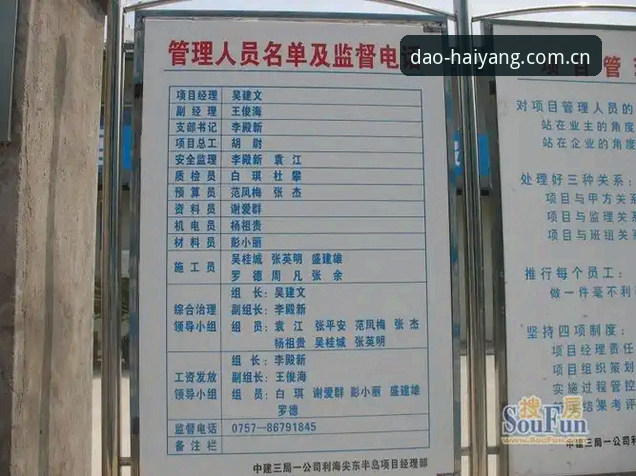 管理人员名单及监督电
dao-haiyang.com.cn
项目经理 吴建文
副经理 王俊海
支部书记 李殿新
项目总工 胡尉
安全监理 李殿新 袁江
质检员 白琪 杜攀
预算员 范凤梅 张杰
资料员 谢爱群
机电员 杨祖贵
材料员 彭小丽
施工员 吴桂城 张英明 盛建雄
罗德 周凡 张余
综合治理领导小组
组长：吴建文
副组长：李殿新
组员：袁江 张平安 范凤梅 张杰
杨祖贵 吴桂城 张英明
工资发放领导小组
组长：李殿新
副组长：王俊海
组员：白琪 谢爱群 彭小丽 盛建雄
罗德
监督电话 0757—86791845
备注栏
中建三局一公司利海尖东半岛项目经理部
项目管
对项目管理人员的
站在业主的角度
站在企业的角度
处理好三种关系：
项目与甲方关系
项目与监理关系
项目与班组关系
推行每个员工：
做一件毫不利
坚持四项制度：
项目经理责任
项目组织策划
实施过程管控
结果考评
搜房
SouFun
www.SouFun.com
中建三局一公司利